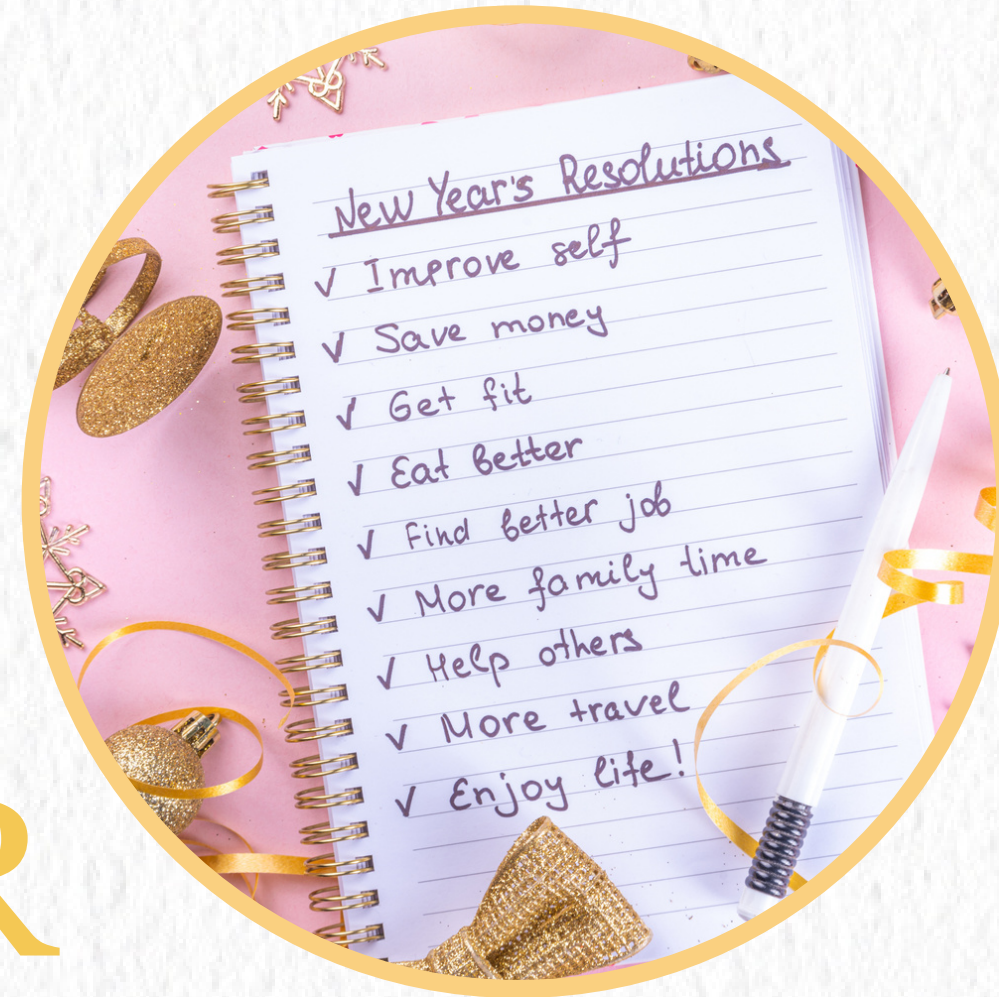 New Year's Resolutions
✓ Improve self
✓ Save money
✓ Get fit
✓ Eat better
✓ Find better job
✓ More family time
✓ Help others
✓ More travel
✓ Enjoy life!
R